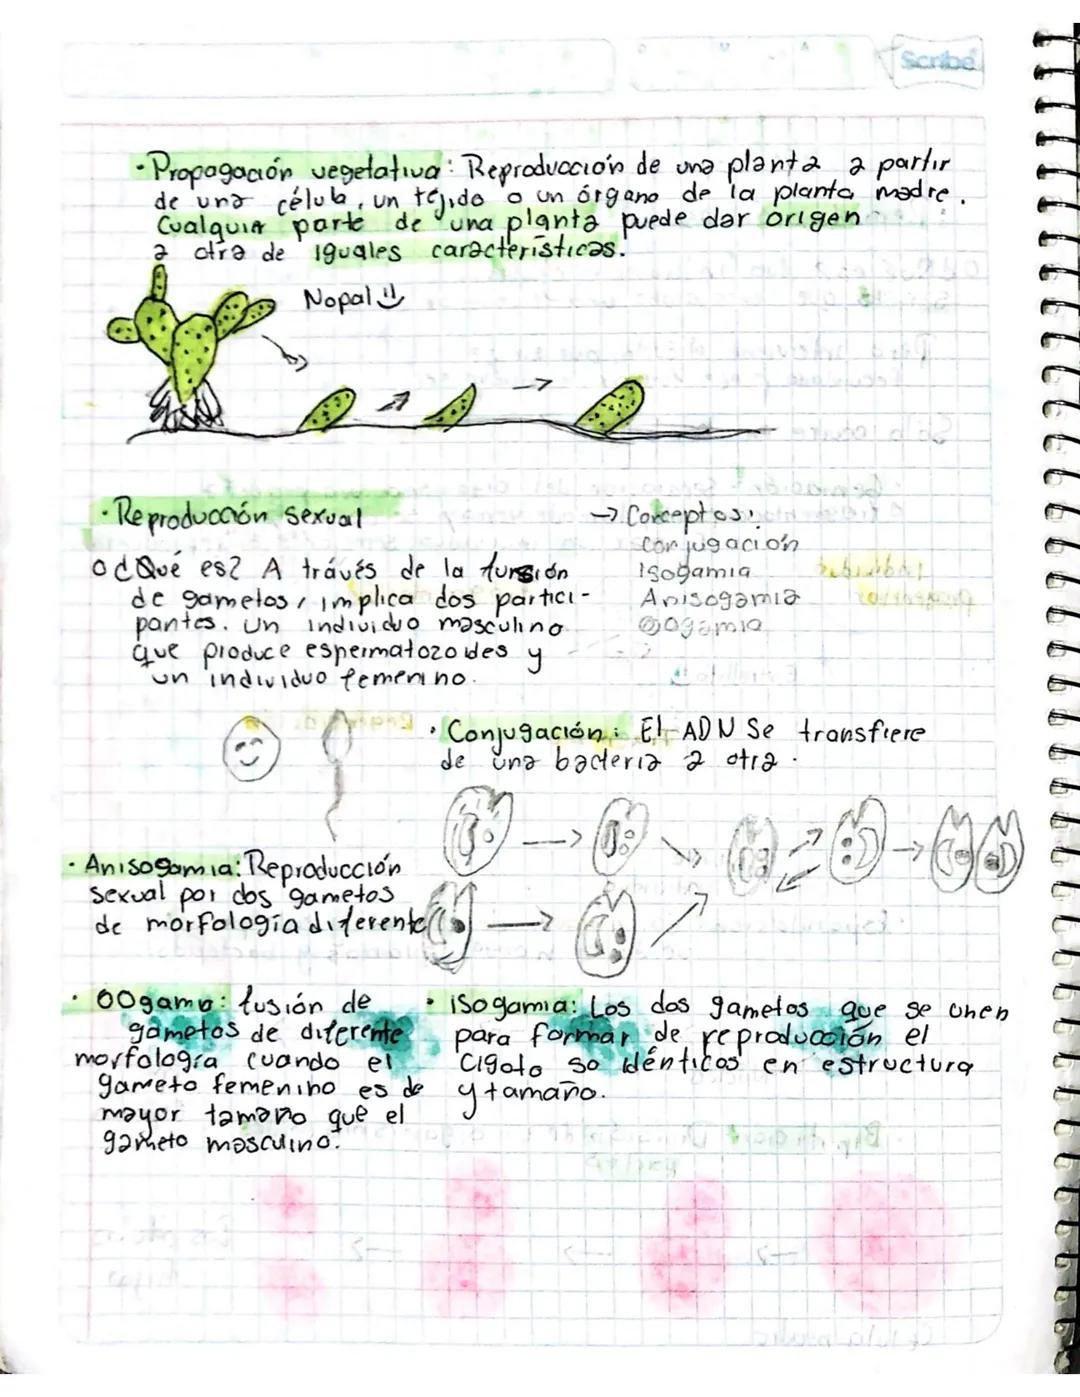 Scribe
· Propagación vegetativa: Reproducción de una planta a partir
de una célula, un tejido o un órgano de la planta madre.
Cualquier parte de una planta puede dar origen
a otra de iguales características.
Nopal
· Reproducción sexual
o ¿Qué es? A través de la fursión
de gametos, implica dos partici-
pantes. Un individuo masculino
que produce espermatozoides y
un individuo femenino.
→ Conceptos:
Conjugación
Isogamia
Anisogamia
Oogamia
· Conjugación: El ADN se transfiere
de una bacteria a otra.
· Anisogamia: Reproducción
sexual por dos gametos
de morfología diferente
· OOgama: fusión de
gametos de diferente
morfología cuando el
gameto femenino es de
mayor tamaño que el
gameto masculino.
· isogamia: Los dos gametos que se unen
para formar de reproducción el
Cigoto so idénticos en estructura
y tamaño.